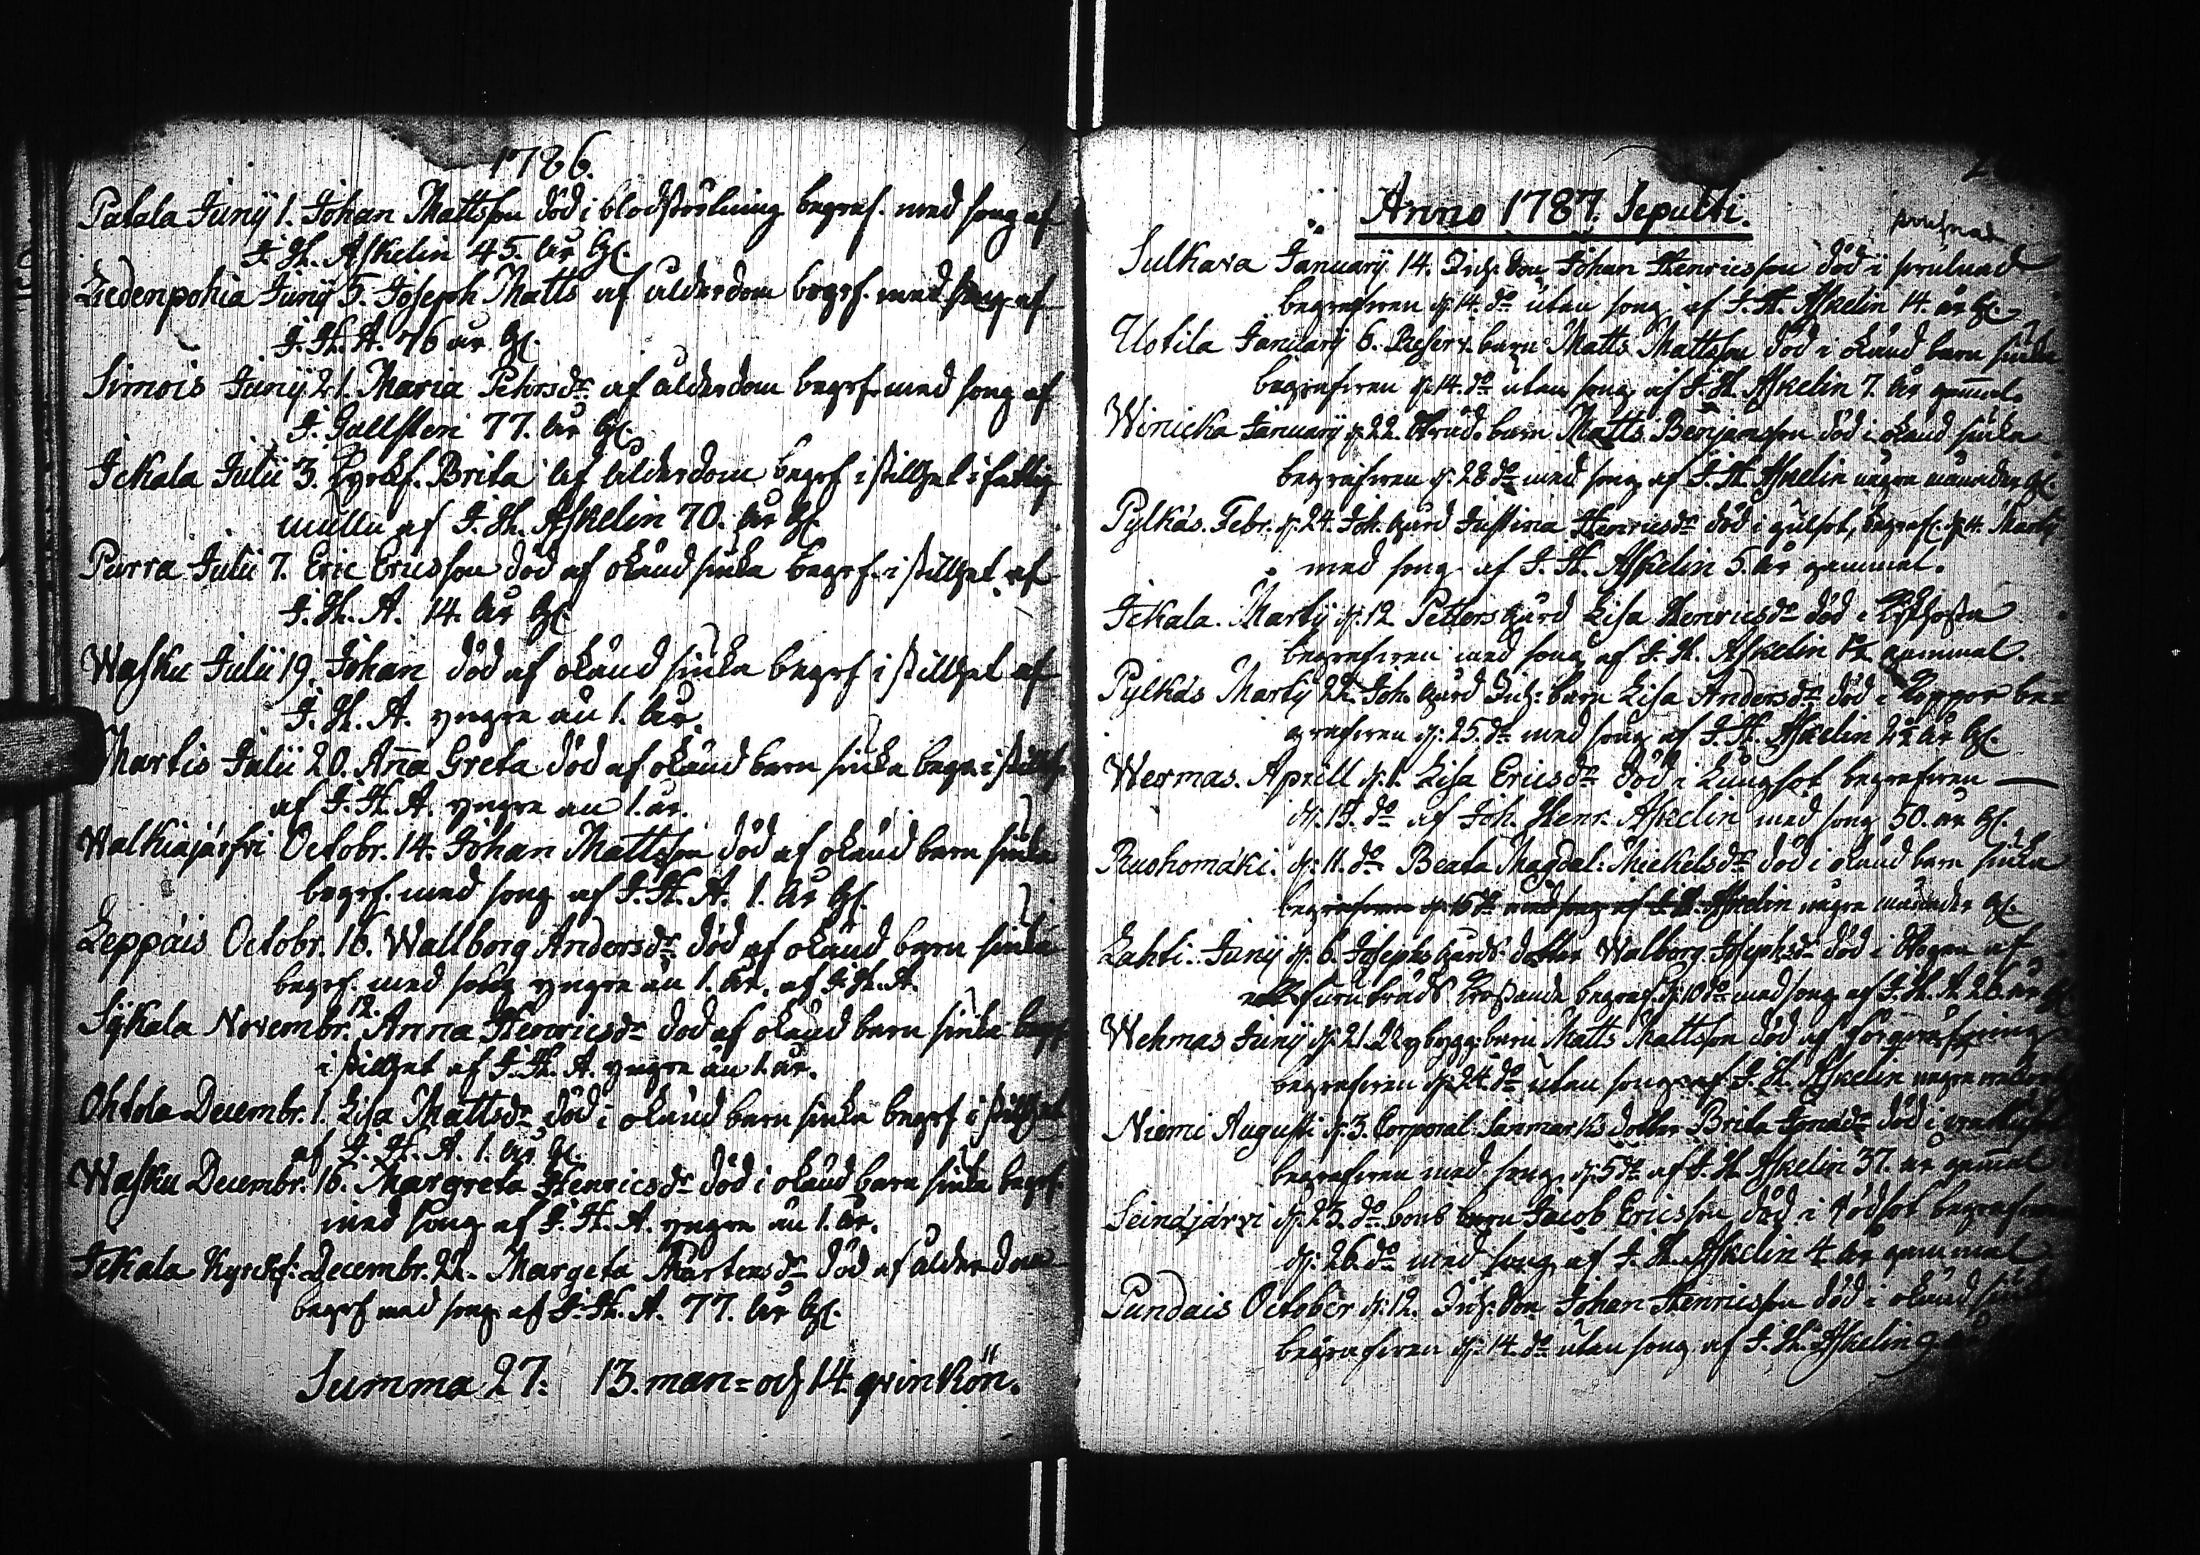 1786.
Patala Junij 1. Johan Mattsson död i blodstörtning begraf. med song af
J. H. Askelin 45. år gl.
Liedenpohia Junij 5. Joseph Matts af ålderdom begrf. med song af
J. H. A. 76 år gl.
Simois Junij 21. Maria Petersdr af ålderdom begrf. med song af
J. Gallsten 77. år gl.
Ickala Julii 3. Kyrckf. Brita af ålderdom begrf i stillhet i fattig
mulln af J. H. Askelin 70. år gl.
Purra Julii 7. Eric Ericsson död af okänd siuka begrf. i stillhet af
J. H. A. 14. år gl.
Wasku Julii 19. Johan död af okänd siuka begrf i stillhet af
J. H. A. yngre än 1. år.
Martis Julii 20. Anna Greta död af okänd barn siuka begr. i stillh.
af J. H. A. yngre än 1. år.
Walkiajärfvi Octobr. 14. Johan Mattsson död af okänd barn siuka
begrf. med song af J. H. A. 1. år gl.
Leppäis Octobr. 16. Wallborg Andersdr död af okänd barn siuka
begrf. med song yngre än 1. år. af J. H. A.
Sykala Novembr. 12. Anna Henricsdr död af okänd barn siuka begrf
i stillhet af J. H. A. yngre än 1. år.
Ohtola Decembr. 1. Lisa Mattsdr död i okänd barn siuka begrf i stillhet
af J. H. A. 1. år gl.
Wasku Decembr. 16. Margreta Henricsdr död i okänd barn siuka begrf.
med song af J. H. A. yngre än 1. år.
Ickala Kyrckf: Decembr. 22. Margeta Mårtensdr död af ålderdom
begrf med song af J. H. A. 77. år gl.
Summa 27: 13. man= och 14 qvinkön.
Anno 1787. Sepulti.
Sulkava Januarij 14. Johan Henricsson död i
begrafven d. 14. do utan song af J. H. Askelin 14. år gl.
Uotila Januarij 6. Reserv. barn Matts Mattsson död i okänd barn siuka
begrafven d. 14. do utan song af J. H. Askelin 7. år gammal.
Winicka Januarij d. 22. barn Matts Benjamsson död i okänd siuka
begrafven d. 28 do med song af J. H. Askelin några månader gl.
Pylkäs. Febr. d. 24. Joh. Justina Henricsdr död i gulsot, begraf. d. 4. Martij
med song af J. H. Askelin 5. år gammal.
Ickala. Martij d. 12 Petters Lisa Henricsdr död i
begrafven med song af J. H. Askelin gammal.
Pylkäs Martij 22. Joh. barn Lisa Andersdr död i Koppor be=
grafven d. 25. do med song af J. H. Askelin 2½ år gl.
Wermas. Aprill d. 1. Lisa Ericsdr död i Lungsot begrafven
d. 15. do af Joh. Henr. Askelin med song 50. år gl.
Ruohomäki. d. 11. do Beata Magdal: Mickelsdr död i okänd barn siuka
begrafven d. 15 do med song af J. H. Askelin några månader gl.
Lahti. Junij d. 6. Josephs dotter Walborg Josephsdr död i
begraf. d. 10 do med song af J. H. A. 26. år gl.
Wehmas Junij d. 21. Nybygg: barn Matts Mattsson död af
begrafven d. 24. do utan song af J. H. Askelin några
Niemi Augusti d. 3. Corporal Sanmarks dotter Brita Jonædr död i
begrafven med song d. 5 do af J. H. Askelin 37. år gammal
Seinäjärvi d. 23. do barn Jacob Ericsson död i rödsot begrafven
d. 26. do med song af J. H. Askelin 4 år gammal
Pundais October d. 12. Johan Henricsson död i okänd siuka
begrafven d. 14. do utan song af J. H. Askelin 9.